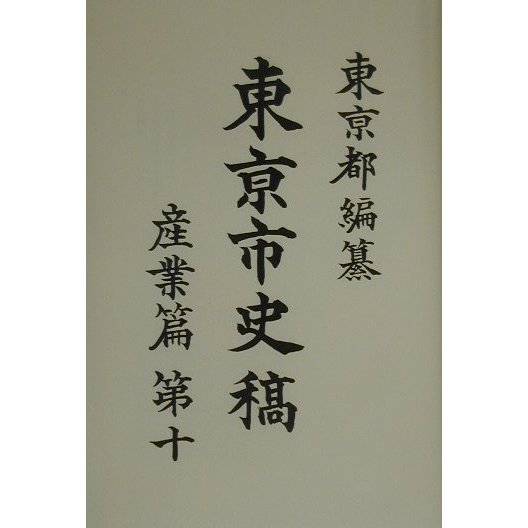 東亰都編纂
東亰市史稿
産業篇 第十